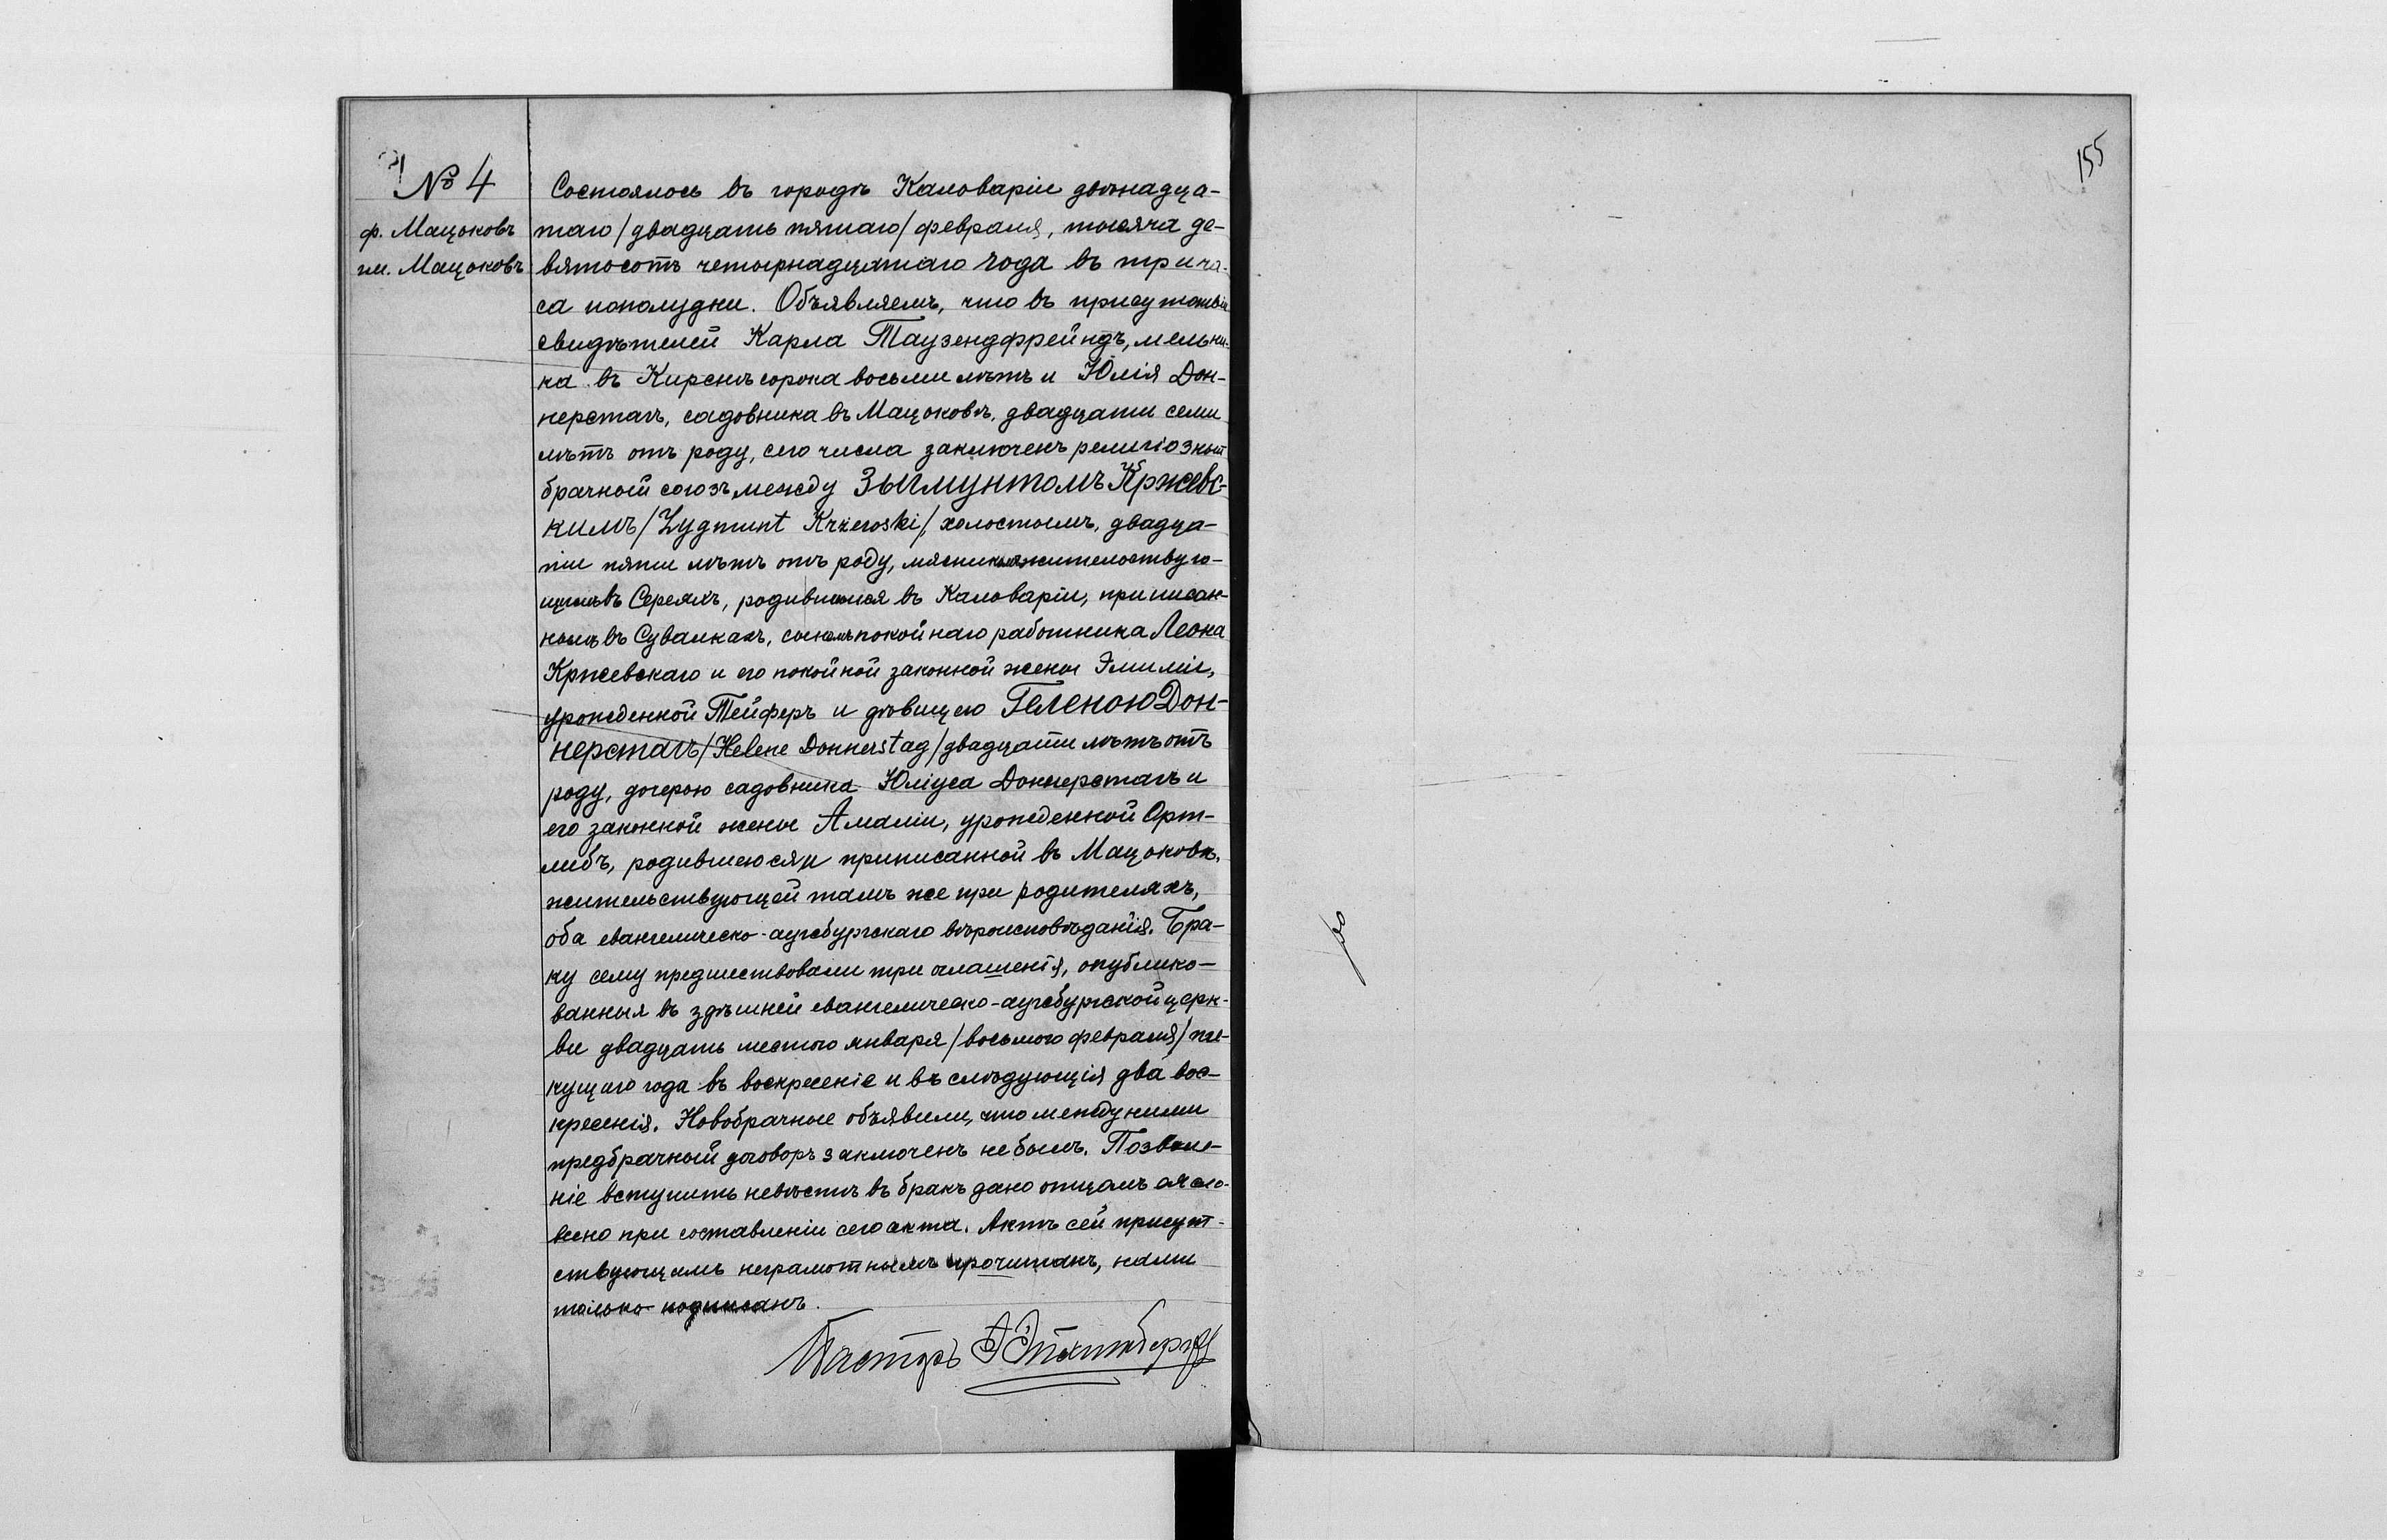 № 4
ф. Мацоковъ
гм. Мацоковъ
Состоялось въ городѣ Кальваріи двѣнадца-
таго /двадцать пятаго/ февраля, тысяча де-
вятьсотъ четырнадцатаго года въ три ча-
са пополудни. Объявляемъ, что въ присутствіи
свидѣтелей Карла Таузендфрейндъ, мельни-
ка въ Кирснѣ сорока восьми лѣтъ и Юлія Дон-
нерстагъ, садовника въ Мацоковѣ, двадцати семи
лѣтъ отъ роду, сего числа заключенъ религіозный
брачный союзъ, между Зыгмунтомъ Кржевс-
кимъ /Zygmunt Krzewski/, холостымъ, двадца-
ти пяти лѣтъ отъ роду, мясникомъ жительствую-
щимъ въ Сереяхъ, родившимся въ Кальваріи, приписан-
нымъ въ Сувалкахъ, сыномъ покойнаго работника Леона
Кржевскаго и его покойной законной жены Эмиліи,
урожденной Тейферъ и дѣвицею Геленою Дон-
нерстагъ /Helene Donnerstag/ двадцати лѣтъ отъ
роду, дочерью садовника Юліуса Доннерстагъ и
его законной жены Амаліи, урожденной Орт-
либъ, родившеюся и приписанной въ Мацоковѣ,
жительствующей тамъ же при родителяхъ,
оба евангелическо-аугсбургскаго вѣроисповѣданія. Бра-
ку сему предшествовали три оглашенія, опублико-
ванныя въ здѣшней евангелическо-аугсбургской церк-
ви двадцать шестого января /восьмого февраля/ те-
кущаго года въ воскресеніе и въ слѣдующія два вос-
кресенія. Новобрачные объявили, что между ними
предбрачный договоръ заключенъ не былъ. Позволе-
ніе вступить невѣстѣ въ бракъ дано отцомъ ея сло-
весно при составленіи сего акта. Актъ сей присут-
ствующимъ неграмотнымъ прочитанъ, нами
только подписанъ.
Пасторъ
155